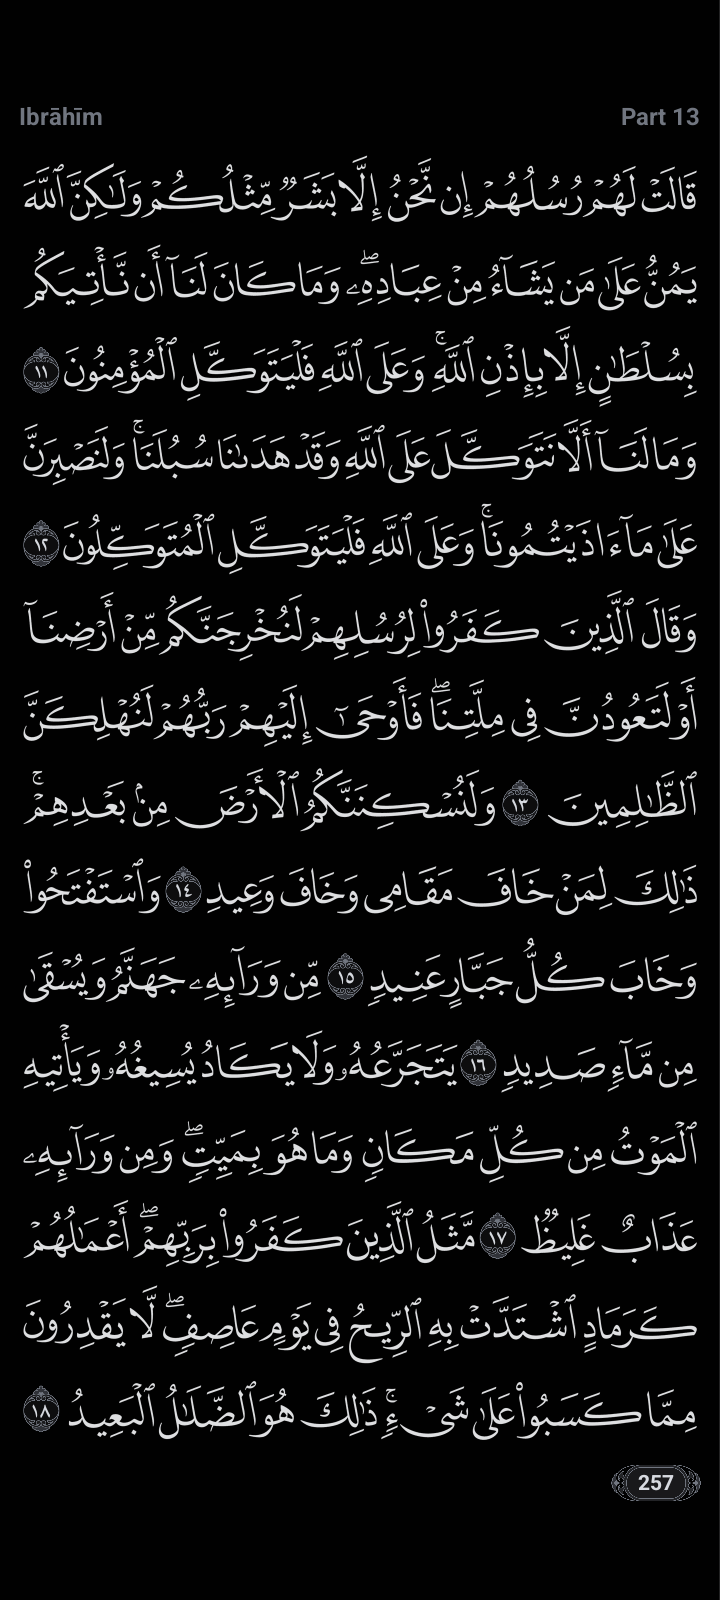 Ibrāhīm
Part 13
قَالَتْ لَهُمْ رُسُلُهُمْ إِن نَّحْنُ إِلَّا بَشَرٌ مِّثْلُكُمْ وَلَٰكِنَّ ٱللَّهَ
يَمُنُّ عَلَىٰ مَن يَشَآءُ مِنْ عِبَادِهِۦۖ وَمَا كَانَ لَنَآ أَن نَّأْتِيَكُم
بِسُلْطَٰنٍ إِلَّا بِإِذْنِ ٱللَّهِۚ وَعَلَى ٱللَّهِ فَلْيَتَوَكَّلِ ٱلْمُؤْمِنُونَ ١١
وَمَا لَنَآ أَلَّا نَتَوَكَّلَ عَلَى ٱللَّهِ وَقَدْ هَدَىٰنَا سُبُلَنَاۚ وَلَنَصْبِرَنَّ
عَلَىٰ مَآ ءَاذَيْتُمُونَاۚ وَعَلَى ٱللَّهِ فَلْيَتَوَكَّلِ ٱلْمُتَوَكِّلُونَ ١٢
وَقَالَ ٱلَّذِينَ كَفَرُوا۟ لِرُسُلِهِمْ لَنُخْرِجَنَّكُم مِّنْ أَرْضِنَآ
أَوْ لَتَعُودُنَّ فِى مِلَّتِنَاۖ فَأَوْحَىٰٓ إِلَيْهِمْ رَبُّهُمْ لَنُهْلِكَنَّ
ٱلظَّٰلِمِينَ ١٣ وَلَنُسْكِنَنَّكُمُ ٱلْأَرْضَ مِنۢ بَعْدِهِمْۚ
ذَٰلِكَ لِمَنْ خَافَ مَقَامِى وَخَافَ وَعِيدِ ١٤ وَٱسْتَفْتَحُوا۟
وَخَابَ كُلُّ جَبَّارٍ عَنِيدٍ ١٥ مِّن وَرَآئِهِۦ جَهَنَّمُ وَيُسْقَىٰ
مِن مَّآءٍ صَدِيدٍ ١٦ يَتَجَرَّعُهُۥ وَلَا يَكَادُ يُسِيغُهُۥ وَيَأْتِيهِ
ٱلْمَوْتُ مِن كُلِّ مَكَانٍ وَمَا هُوَ بِمَيِّتٍۖ وَمِن وَرَآئِهِۦ
عَذَابٌ غَلِيظٌ ١٧ مَّثَلُ ٱلَّذِينَ كَفَرُوا۟ بِرَبِّهِمْۖ أَعْمَٰلُهُمْ
كَرَمَادٍ ٱشْتَدَّتْ بِهِ ٱلرِّيحُ فِى يَوْمٍ عَاصِفٍۖ لَّا يَقْدِرُونَ
مِمَّا كَسَبُوا۟ عَلَىٰ شَىْءٍۚ ذَٰلِكَ هُوَ ٱلضَّلَٰلُ ٱلْبَعِيدُ ١٨
257